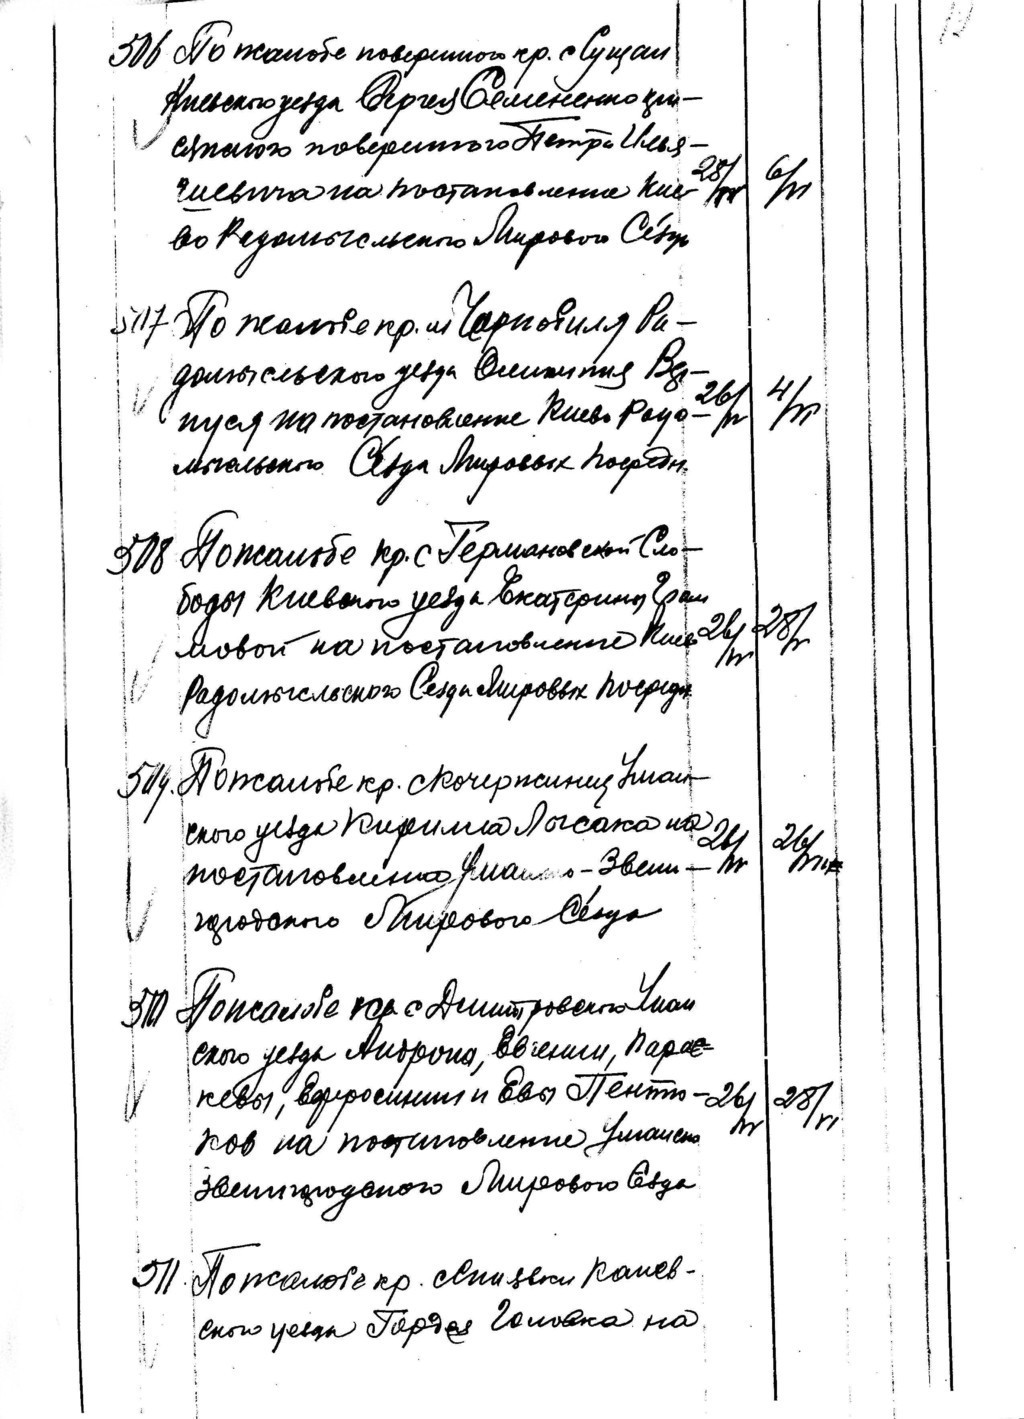 506 По жалобе поверенного кр. с Сущан
Киевского уезда Сергея Семененко при-
сяжного поверенного Петра Илья-
шевича на постановление Кие 28/IV 6/VI
во Радомысльского Мирового Сезда
507 По жалобе кр. м Чернобиля Ра-
домысльского уезда
на постановление Киево Радо- 26/IV 4/VI
мысльского Сезда Мировых Посредн.
508 По жалобе кр. с Германовской Сло-
боды Киевского уезда Екатерины Грам
мовой на постановление Киев 26/IV 28/V
Радомысльского Сезда Мировых Посредн
509. По жалобе кр. с Кочержинец Уман-
ского уезда Кирилла Лысака на
постановление Уманско-Звени- 26/IV
городского Мирового Сезда
510 По жалобе кр с Дмитровского Уман
ского уезда Андрона, Евгении, Парас=
кевы, Ефросинии и Евы Пенть-
ков на постановление Уманско 26/IV 28/VI
Звенигородского Мирового Сезда
511. По жалобе кр. с Канев-
ского уезда Гордея Головка на